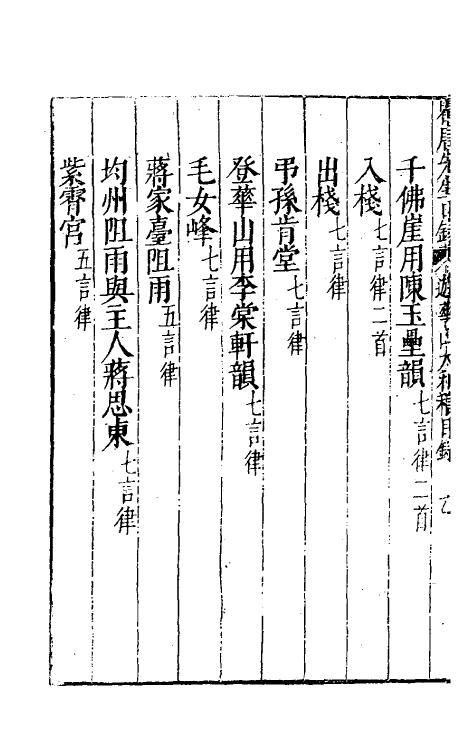 千佛崖用陳玉壘韻七言律二首
入棧七言律二首
出棧七言律
弔孫肯堂七言律
登華山用李棠軒韻七言律
毛女峰七言律
蔣家臺阻雨五言律
均州阻雨與主人蔣思東七言律
紫霄宮五言律